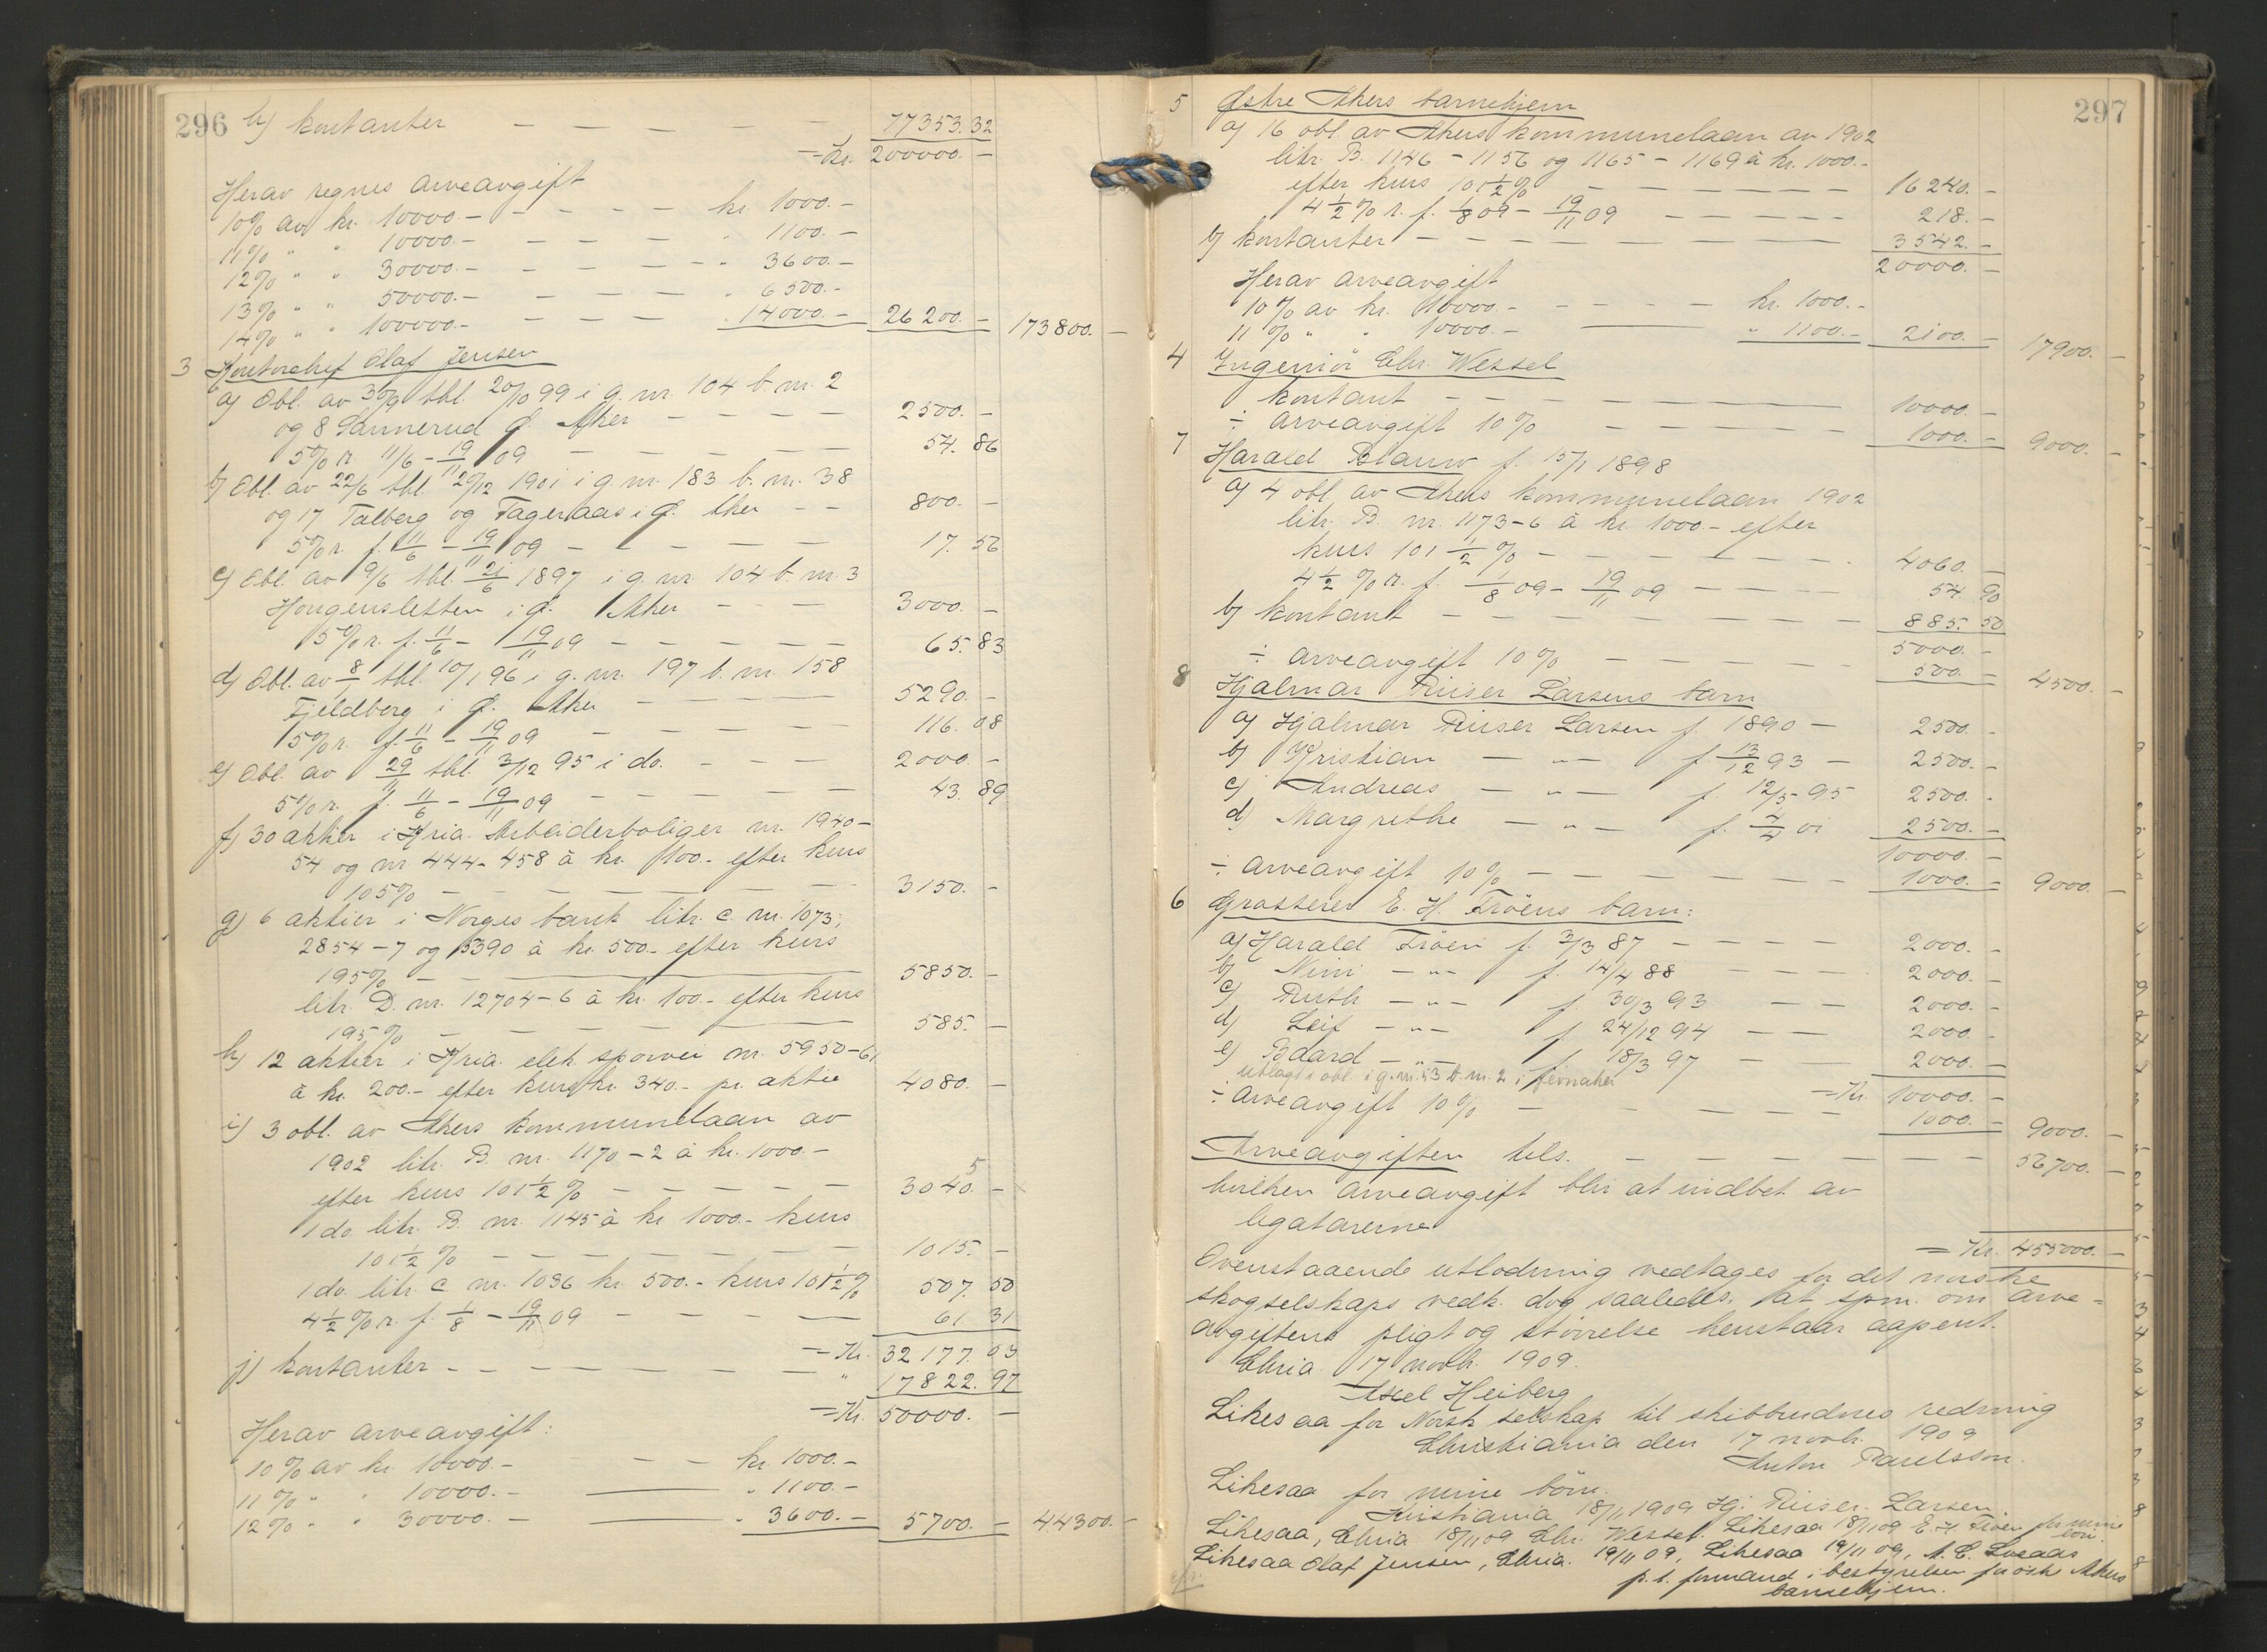 296
h) kontanter — — — — — 77353.32
= kr. 200000.—
Herav regnes arveavgift
10% av kr. 10000.— — — — — kr. 1000.—
11% " " 10000.— — — — — " 1100.—
12% " " 30000.— — — — — " 3600.—
13% " " 50000.— — — — — " 6500.—
14% " " 100000.— — — — " 14000.— 26200.— 173800.—
3 Kontorchef Olaf Jensen
a) Obl. av 30/9 tbl. 20/10 99 i g. nr. 104 b. nr. 2
og 8 Sannerud Ø. Aker — — — — 2500.—
5% r. 11/6 - 19/11 09 — — — — — 54.86
b) Obl. av 22/6 tbl. 20/12 1901 i g. nr. 183 b. nr. 38
og 17 Talberg og Fageraas i Ø. Aker — — 800.—
5% r. f. 11/6 - 19/11 09 — — — — — 17.56
c) Obl. av 9/6 tbl. 21/6 1897 i g. nr. 104 b. nr. 3
Hougensletten i Ø. Aker — — — 3000.—
5% r. f. 11/6 - 19/11 09 — — — — — 65.83
d) Obl. av 8/1 tbl. 10/1 96 i g. nr. 197 b. nr. 158
Fjeldberg i Ø. Aker — — — — 5290.—
5% r. f. 11/6 - 19/11 09 — — — — — 116.08
e) Obl. av 29/11 tbl. 3/12 95 i do. — — — 2000.—
5% r. f. 11/6 - 19/11 09 — — — — — 43.89
f) 30 aktier i Kria. Arbeiderboliger nr. 1940-
54 og nr 444-458 à kr. 100.- efter kurs
105% — — — — — — — 3150.—
g) 6 aktier i Norges bank litr. C. nr. 1073,
2854-7 og 5390 à kr. 500.- efter kurs
195% — — — — 5850.—
litr. D. nr. 12704-6 à kr. 100.- efter kurs
195% — — — — — 585.—
h) 12 aktier i Kria. elek. sporvei nr. 5950-61
à kr. 200.- efter kurs kr. 340.- pr. aktie 4080.—
i) 3 obl. av Akers kommunelaan av
1902 litr. B. nr. 1170-2 à kr. 1000.-
5
efter kurs 101 1/2 % — — — — — 3040.—
1 do. litr. B. nr. 1145 à kr 1000.- kurs
101 1/2 % — — — — — — 1015.—
1 do. litr. C nr. 1036 kr. 500.- kurs 101 1/2 % 507.50
4 1/2 % r. f. 1/8 - 19/11 09 — — — — 61.31
= Kr. 32177.03
j) kontanter — — — — — — — " 17822.97
= Kr. 50000.—
Herav arveavgift:
10% av kr 10000.— — — — kr. 1000.—
11% " " 10000.— — " 1100.—
12% " " 30000.— — " 3600.— 5700.— 44300.—
297
5 Østre Akers barnehjem
a) 16 obl. av Akers kommunelaan av 1902
litr. B. 1146-1156 og 1165-1169 à kr. 1000.-
efter kurs 101 1/2 % — — — — — — 16240.—
4 1/2 % r. f. 1/8 09 - 19/11 09 — — — — — 218.—
b) kontanter — — — — — — — — 3542.—
20000.—
Herav arveavgift
10% av kr. 10000.- — — — — kr. 1000.-
11% " " 10000.- — " 1100.— 2100.— 17900.—
4 Ingeniør Chr. Wessel
kontant — — — — — — 10000.—
÷ arveavgift 10% — — — — — 1000.— 9000.—
7 Harald Blauw f. 15/1 1898
a) 4 obl. av Akers kommunelaan 1902
litr. B. nr. 1173-6 à kr 1000.- efter
kurs 101 1/2 % — — — — — — 4060.—
4 1/2 % r. f. 1/8 09 - 19/11 09 — — — — 54.90
b) kontant — — — — — — — — 885.50
5000.—
÷ arveavgift 10% — — — — — 500.— 4500.—
8 Hjalmar Riiser Larsens barn
a) Hjalmar Riiser Larsen f. 1890 — 2500.—
b) Kristian — " — f. 13/12 93 — 2500.—
c) Andreas — " — f. 12/5 95 2500.—
d) Margrethe — " — f. 4/4 01 2500.—
10000.—
÷ arveavgift 10% — — — — — — 1000.— 9000.—
6 Grosserer E. H. Frøens barn:
a) Harald Frøen f. 3/3 87 — — — — 2000.—
b) Nini — " — f. 14/4 88 — — — 2000.—
c) Ruth — " — f. 30/3 93 — — 2000.—
d) Leif — " — f. 24/12 94 — — 2000.—
e) Baard — " — f. 18/3 97 — — 2000.—
utlagt i obl. i g. nr. 53 b. nr. 2 i
= Kr. 10000.—
÷ arveavgift 10% — — — — — — 1000.— 9000.—
Arveavgiften tils. — — — — — — — 56700.—
hvilken arveavgift blir at indbet. av
legatarerne
= Kr. 455000.—
Ovenstaaende utlodning vedtages for det norske
skogselskaps vedk. dog saaledes, at spm. om arve-
avgiftens pligt og størrelse henstaar aapent.
Chria. 17 novbr. 1909.
Axel Heiberg
Likesaa for Norsk selskap til skibbrudnes redning
Christiania den 17 novbr. 1909
Anton Poulsson.
Likesaa for mine børn.
Kristiania 18/11 1909 Hj. Riiser-Larsen.
Likesaa, Chria 18/11 09 Chr. Wessel. Likesaa 18/11 09 E. H. Frøen for mine
børn.
Likesaa Olaf Jensen, Chria. 19/11 09, Likesaa 19/11 09,
p. t. formand i bestyrelsen for østre Akers
barnehjem.